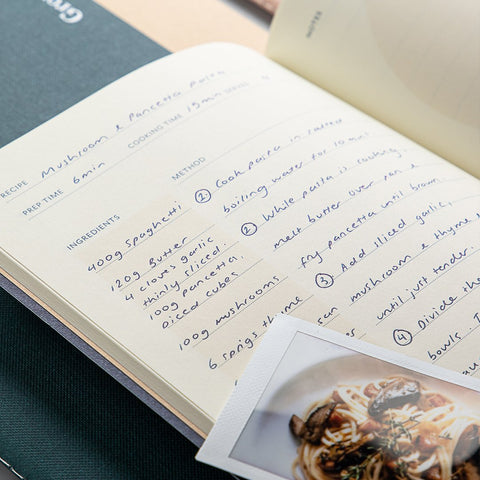 Gro
NOTES
RECIPE Mushroom & Pancetta Pasta
PREP TIME 6min COOKING TIME 15min SERVES 4
INGREDIENTS
400g Spaghetti
120g Butter
4 cloves garlic
thinly sliced.
100g Pancetta,
Diced cubes
100g mushrooms
6 sprigs thyme
METHOD
1. Cook pasta in salted
boiling water for 10 min.
2. While pasta is cooking,
melt butter over pan &
fry pancetta until brown.
3 Add sliced garlic,
mushroom & thyme
until just tender.
4 Divide the
bowls.